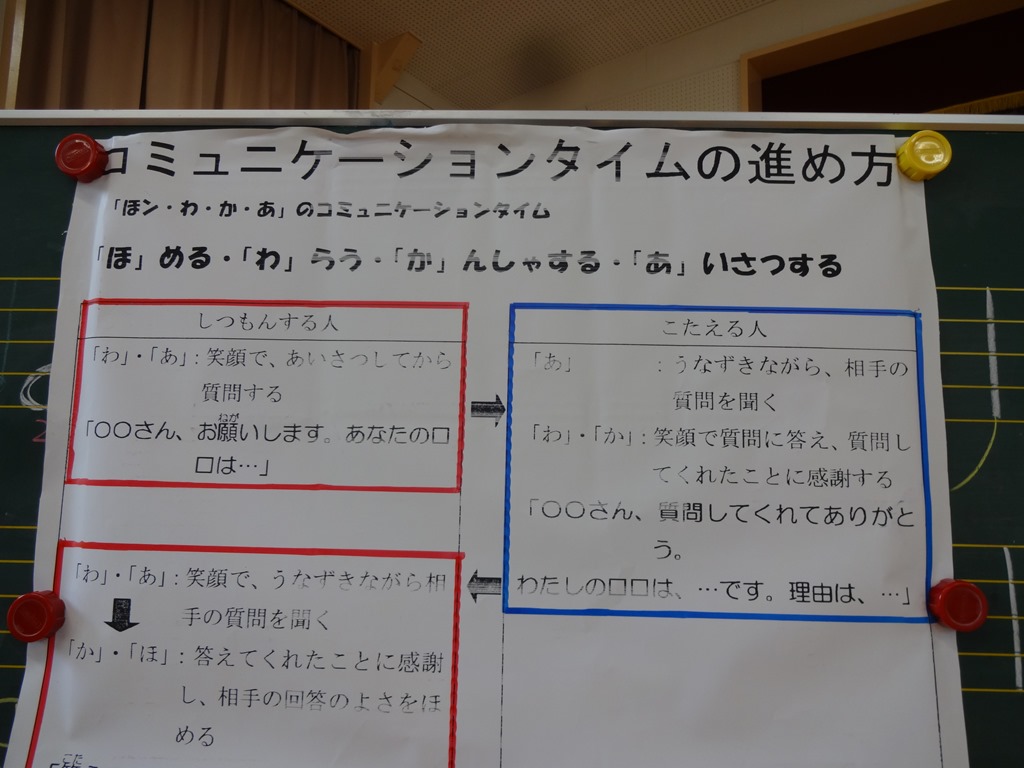 コミュニケーションタイムの進め方
「ホン・わ・か・あ」のコミュニケーションタイム
「ほ」める・「わ」らう・「か」んしゃする・「あ」いさつする
しつもんする人
「わ」・「あ」：笑顔で、あいさつしてから
質問する
「〇〇さん、お願いします。あなたの口
口は…」
こたえる人
「あ」　　　：うなずきながら、相手の
質問を聞く
「わ」・「か」：笑顔で質問に答え、質問し
てくれたことに感謝する
「〇〇さん、質問してくれてありがと
う。
わたしの口口は、…です。理由は、…」
「わ」・「あ」：笑顔で、うなずきながら相
手の質問を聞く
「か」・「ほ」：答えてくれたことに感謝
し、相手の回答のよさをほ
める